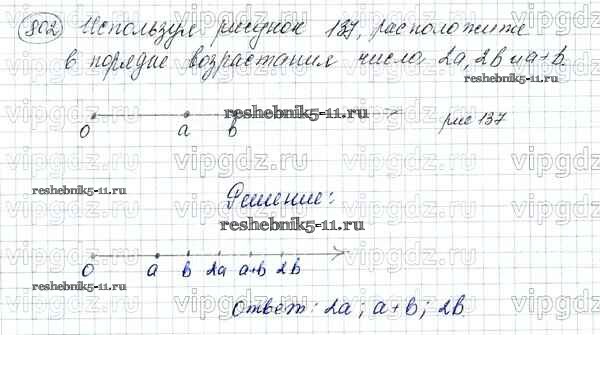 802 Используя рисунок 137, расположите
в порядке возрастания числа 2a, 2b и a+b.
reshebnik5-11.ru
0 a b рис 137
reshebnik5-11.ru
Решение:
reshebnik5-11.ru
0 a b 2a a+b 2b
reshebnik5-11.ru
Ответ: 2a; a+b; 2b.